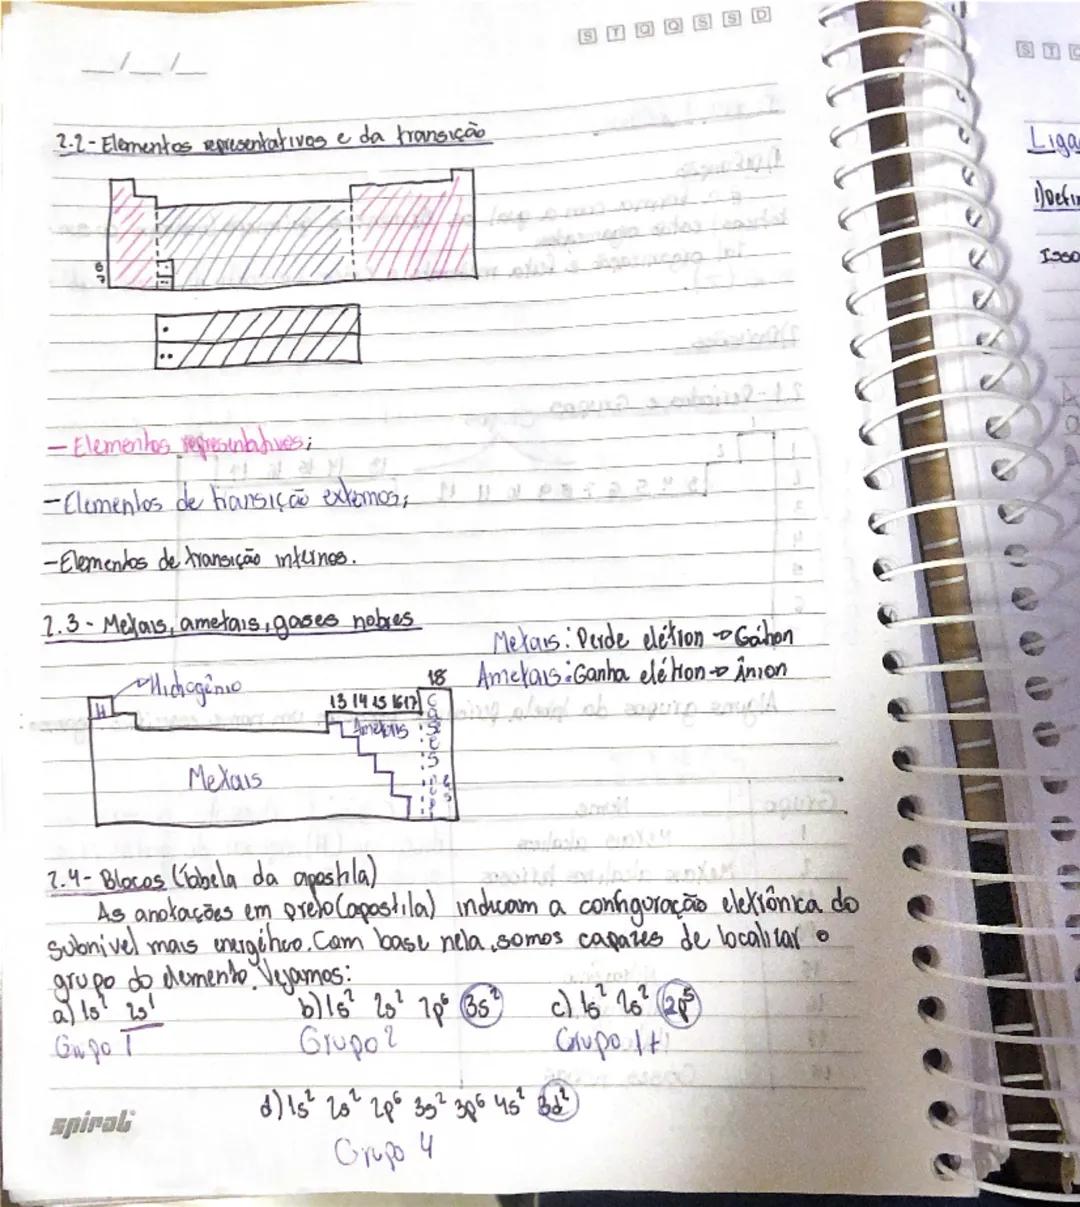 S T Q Q S S D
__/__/__
2.2 - Elementos representativos e da transição
6
7
- Elementos representativos;
- Elementos de transição externos;
- Elementos de transição internos.
2.3 - Metais, ametais, gases nobres
Metais: Perde elétron → Cátion
Ametais: Ganha elétron → Ânion
Hidrogênio
H
18
13 14 15 16 17
Ametais
Gases
Metais
2.4 - Blocos (Tabela da apostila)
As anotações em preto (apostila) indicam a configuração eletrônica do
subnível mais energético. Com base nela, somos capazes de localizar o
grupo do elemento. Vejamos:
a) 1s² 2s¹
b) 1s² 2s² 2p⁶ 3s²
c) 1s² 2s² 2p⁵
Grupo 1
Grupo 2
Grupo 17
d) 1s² 2s² 2p⁶ 3s² 3p⁶ 4s² 3d²
Grupo 4
spiral
S T
Liga
1) Defin
Isso